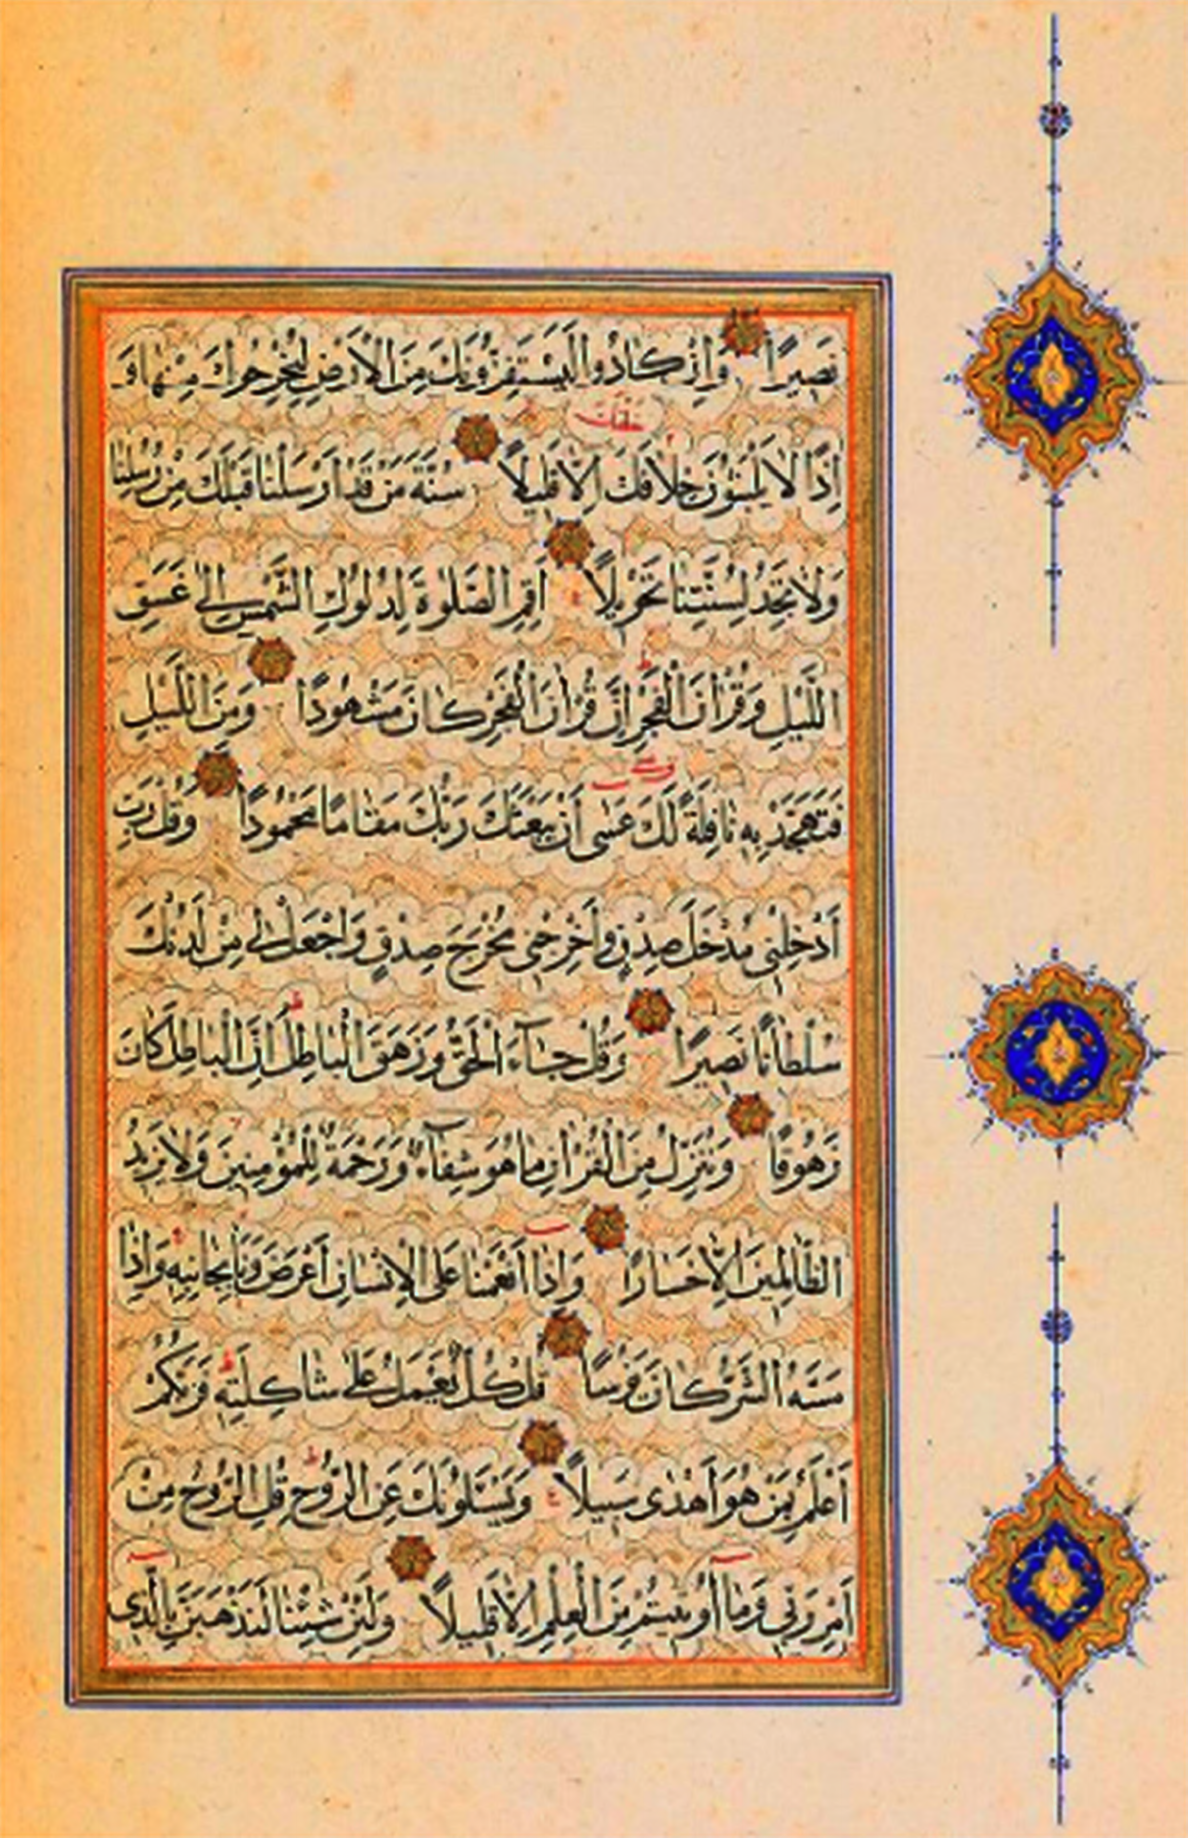 نَصِيرًا وَإِنْ كَادُوا لَيَسْتَفِزُّونَكَ مِنَ الْأَرْضِ لِيُخْرِجُوكَ مِنْهَا وَ
إِذًا لَا يَلْبَثُونَ خِلَافَكَ إِلَّا قَلِيلًا سُنَّةَ مَنْ قَدْ أَرْسَلْنَا قَبْلَكَ مِنْ رُسُلِنَا
وَلَا تَجِدُ لِسُنَّتِنَا تَحْوِيلًا أَقِمِ الصَّلٰوةَ لِدُلُوكِ الشَّمْسِ إِلَى غَسَقِ
اللَّيْلِ وَقُرْآنَ الْفَجْرِ إِنَّ قُرْآنَ الْفَجْرِ كَانَ مَشْهُودًا وَمِنَ اللَّيْلِ
فَتَهَجَّدْ بِهِ نَافِلَةً لَكَ عَسَى أَنْ يَبْعَثَكَ رَبُّكَ مَقَامًا مَحْمُودًا وَقُلْ رَبِّ
أَدْخِلْنِي مُدْخَلَ صِدْقٍ وَأَخْرِجْنِي مُخْرَجَ صِدْقٍ وَاجْعَلْ لِي مِنْ لَدُنْكَ
سُلْطَانًا نَصِيرًا وَقُلْ جَاءَ الْحَقُّ وَزَهَقَ الْبَاطِلُ إِنَّ الْبَاطِلَ كَانَ
زَهُوقًا وَنُنَزِّلُ مِنَ الْقُرْآنِ مَا هُوَ شِفَاءٌ وَرَحْمَةٌ لِلْمُؤْمِنِينَ وَلَا يَزِيدُ
الظَّالِمِينَ إِلَّا خَسَارًا وَإِذَا أَنْعَمْنَا عَلَى الْإِنْسَانِ أَعْرَضَ وَنَأَى بِجَانِبِهِ وَإِذَا
مَسَّهُ الشَّرُّ كَانَ يَؤُسًا قُلْ كُلٌّ يَعْمَلُ عَلَى شَاكِلَتِهِ فَرَبُّكُمْ
أَعْلَمُ بِمَنْ هُوَ أَهْدَى سَبِيلًا وَيَسْئَلُونَكَ عَنِ الرُّوحِ قُلِ الرُّوحُ مِنْ
أَمْرِ رَبِّي وَمَا أُوتِيتُمْ مِنَ الْعِلْمِ إِلَّا قَلِيلًا وَلَئِنْ شِئْنَا لَنَذْهَبَنَّ بِالَّذِي